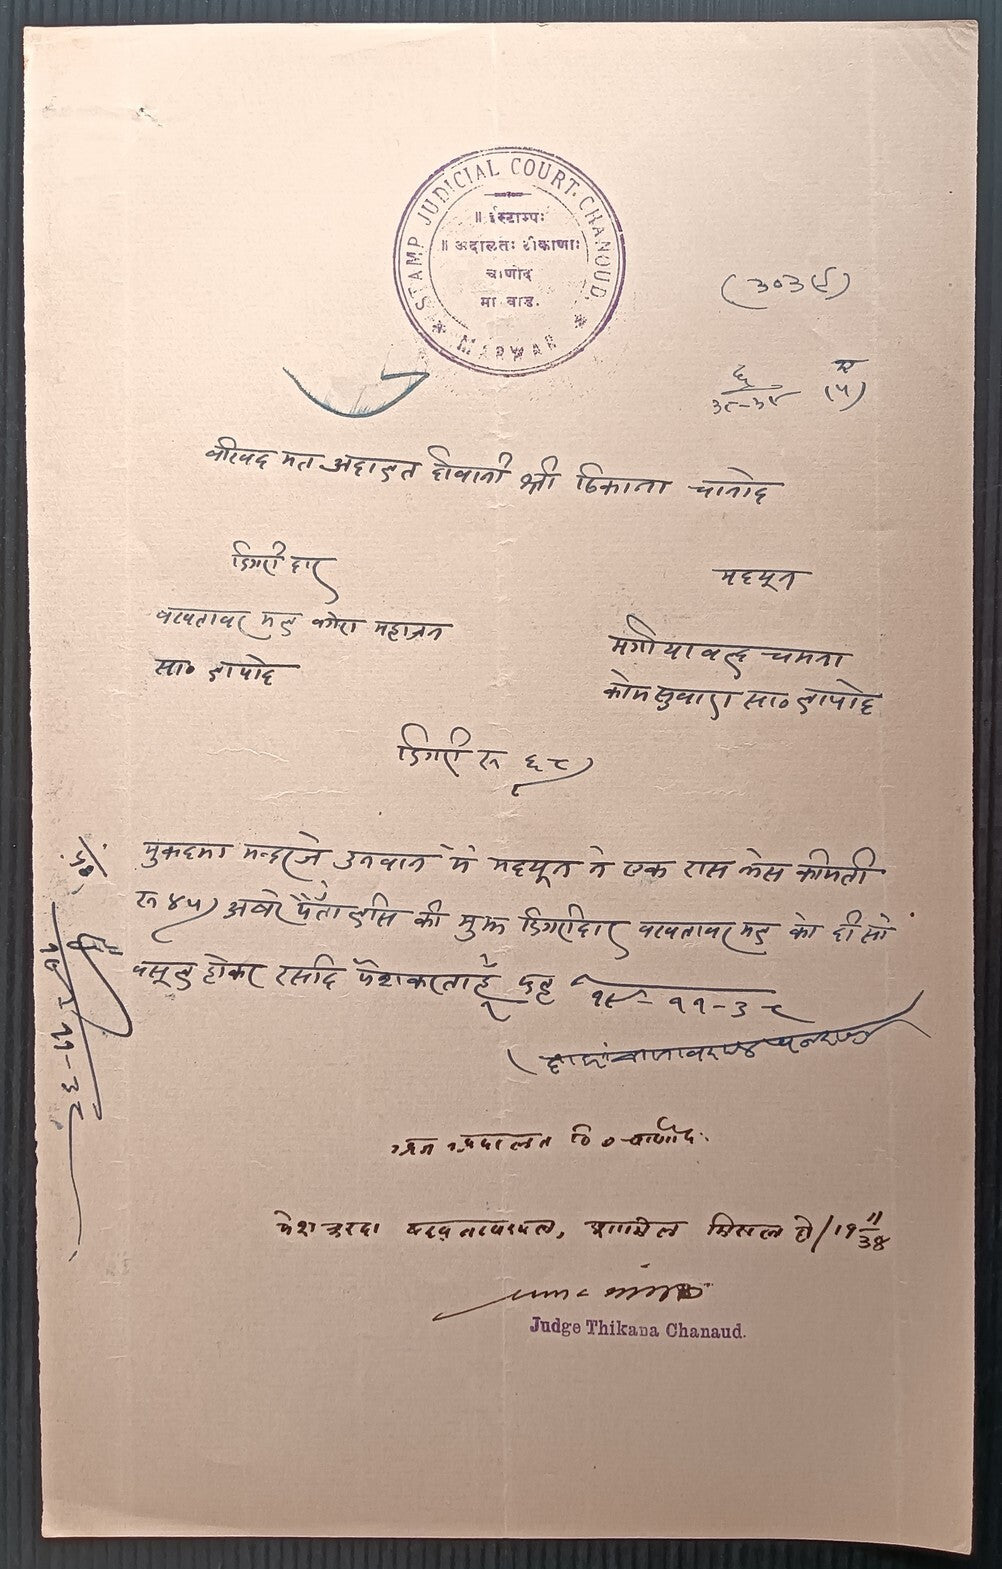 STAMP JUDICIAL COURT. CHANOUD.
॥ ईस्टाम्पः
॥ अदालतः ठीकाणाः
चाणोद
मा वाड.
* MARWAR *
(३०३९)
६
३८-३९ (५)
अदालत दीवानी श्री ठिकाना चानोद
डिगरीदार
मदयून
वखतावर मल वगेरा महाजन
सा० लापोद
मगीया वल्द चमना
कोम सुथार सा० लापोद
डिगरी रु ६८)
मुकदमा मन्दरजे उनवान में मदयून ने एक रास भेस कीमती
रु ४५) अखरे पैंतालीस की मुझ डिगरीदार वखतावर मल को दी सो
वसूल होकर रसीद पेश करता हूँ फक्त १९-११-३८
१९-११-३८
अदालत ठि० चाणोद.
पेश करदा वखतावरमल, शामील मिसल हो/19 11/38
Judge Thikana Chanaud.